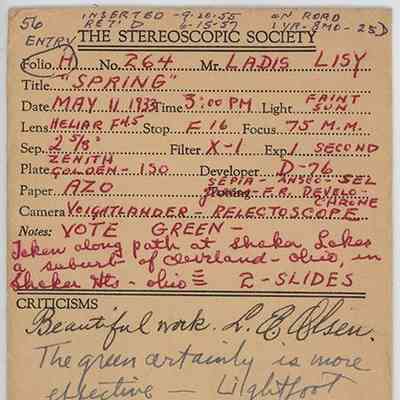 56 INSERTED - 9-10-55 ON ROAD
ENTRY RET. D 6-15-57 1 YR-8MO-25D
THE STEREOSCOPIC SOCIETY
Folio H No. 264 Mr. LADIS LISY
Title "SPRING"
Date MAY 11 1933 Time 3:00 PM Light FAINT SUN
Lens HELIAR F4.5 Stop F 16 Focus 75 M.M.
Sep. 2 5/8" Filter X-1 Exp. 1 SECOND
Plate ZENITH GOLDEN - 150 Developer D-76
Paper AZO SEPIA - ANSCO - SEL
Toning - E.R. DEVELO-CHROME
Camera VOIGHTLANDER - RELECTOSCOPE
Notes: VOTE GREEN -
Taken along path at Shaker Lakes
a suburb of Cleveland - Ohio, in
Shaker Hts - Ohio 2-SLIDES
CRITICISMS
Beautiful work. L. E. Olsen.
The green certainly is more
effective — Lightfoot